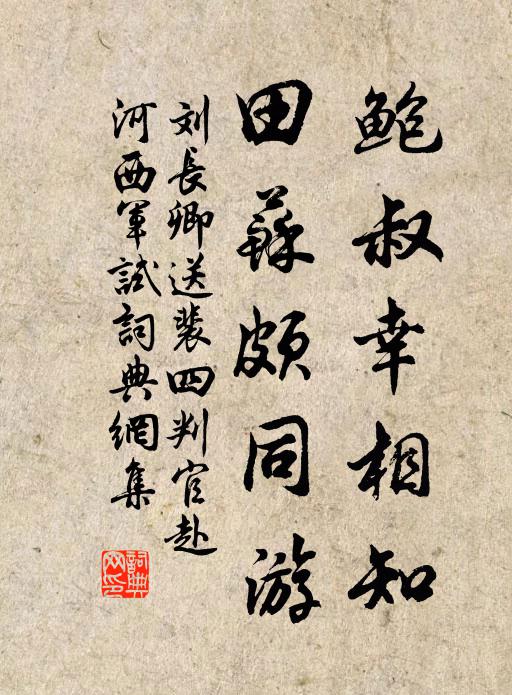 鲍叔幸相知
田蘇頗同游
刘長卿送裴四判官赴
河西軍試詞典網集
詞典
网印